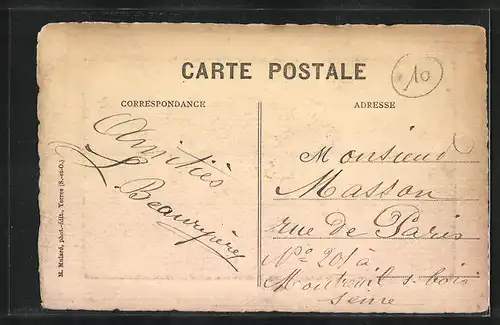 CARTE POSTALE
10
CORRESPONDANCE
ADRESSE
Amitiés
Monsieur
Masson
rue de Paris
No 201 à
Montreuil s. bois
Seine
phot.-édit., Yerres (S.-et-O.)